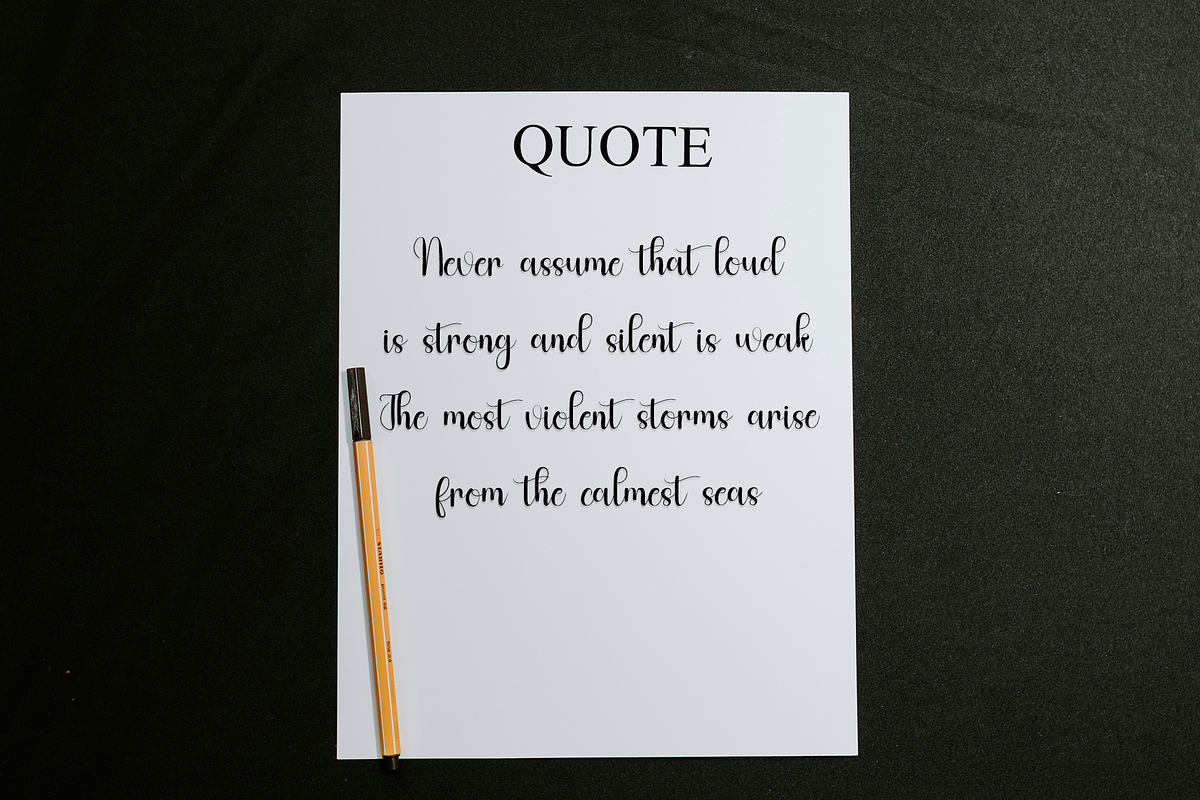 QUOTE
Never assume that loud
is strong and silent is weak
The most violent storms arise
from the calmest seas
STABILO point 88